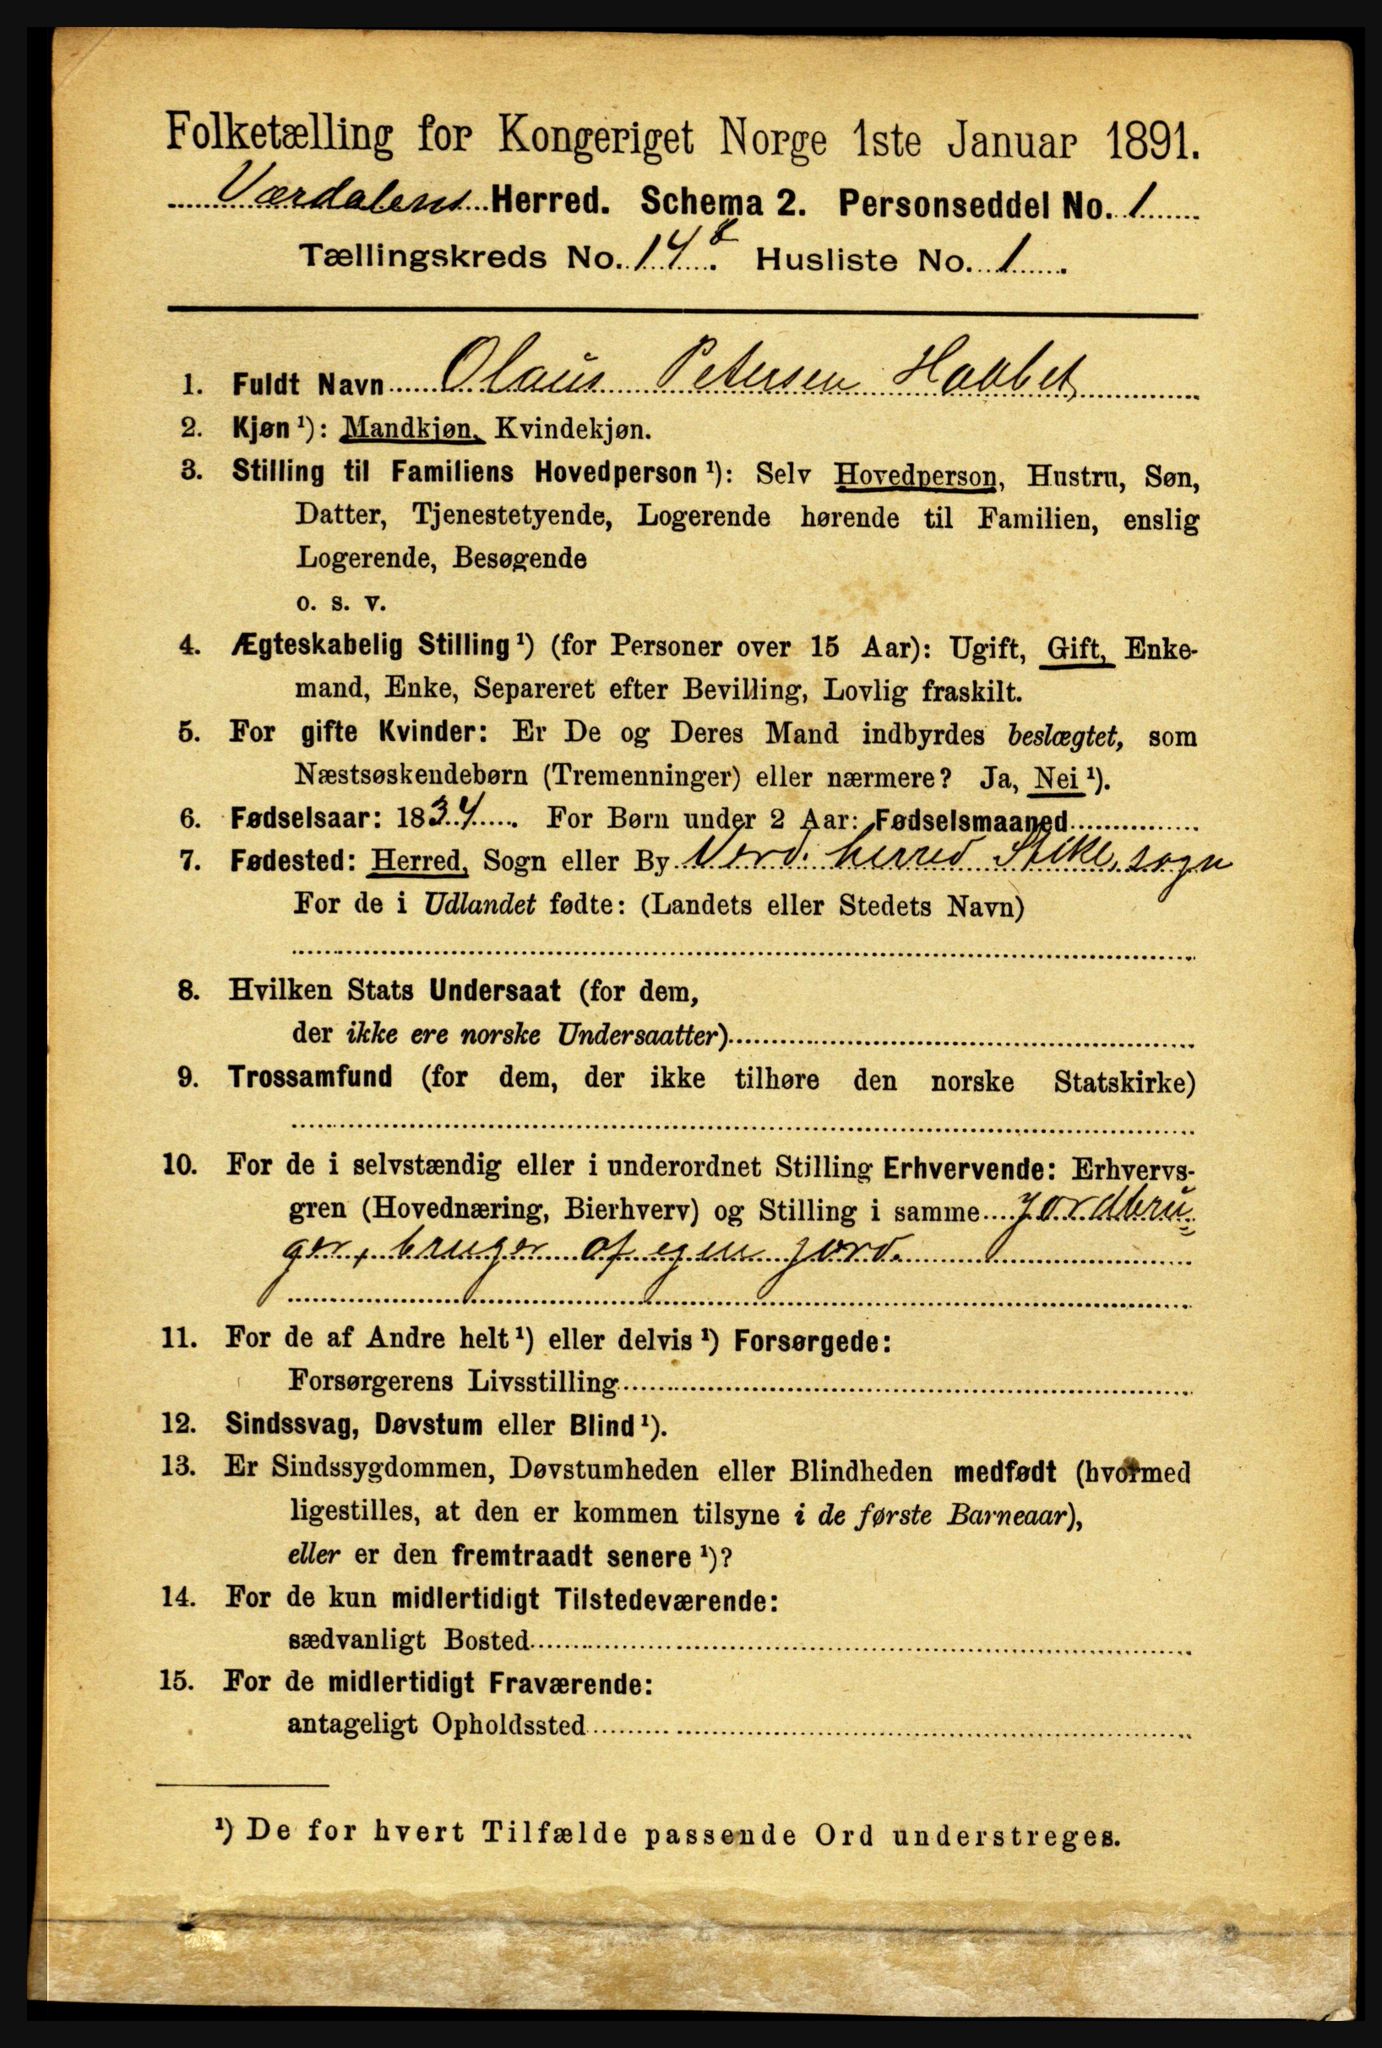 Folketælling for Kongeriget Norge 1ste Januar 1891.
Værdalens Herred. Schema 2. Personseddel No. 1
Tællingskreds No. 14 Husliste No. 1
1. Fuldt Navn Olaus Petersen Haabet
2. Kjøn ¹): Mandkjøn, Kvindekjøn.
3. Stilling til Familiens Hovedperson ¹): Selv Hovedperson, Hustru, Søn,
Datter, Tjenestetyende, Logerende hørende til Familien, enslig
Logerende, Besøgende
o. s. v.
4. Ægteskabelig Stilling ¹) (for Personer over 15 Aar): Ugift, Gift, Enke-
mand, Enke, Separeret efter Bevilling, Lovlig fraskilt.
5. For gifte Kvinder: Er De og Deres Mand indbyrdes beslægtet, som
Næstsøskendebørn (Tremenninger) eller nærmere? Ja, Nei ¹).
6. Fødselsaar: 1834. For Børn under 2 Aar: Fødselsmaaned
7. Fødested: Herred, Sogn eller By Verd. herred Stikl. sogn
For de i Udlandet fødte: (Landets eller Stedets Navn)
8. Hvilken Stats Undersaat (for dem,
der ikke ere norske Undersaatter)
9. Trossamfund (for dem, der ikke tilhøre den norske Statskirke)
10. For de i selvstændig eller i underordnet Stilling Erhvervende: Erhvervs-
gren (Hovednæring, Bierhverv) og Stilling i samme Jordbru-
ger, bruger af egen jord.
11. For de af Andre helt ¹) eller delvis ¹) Forsørgede:
Forsørgerens Livsstilling
12. Sindssvag, Døvstum eller Blind ¹).
13. Er Sindssygdommen, Døvstumheden eller Blindheden medfødt (hvormed
ligestilles, at den er kommen tilsyne i de første Barneaar),
eller er den fremtraadt senere ¹)?
14. For de kun midlertidigt Tilstedeværende:
sædvanligt Bosted
15. For de midlertidigt Fraværende:
antageligt Opholdssted
¹) De for hvert Tilfælde passende Ord understreges.